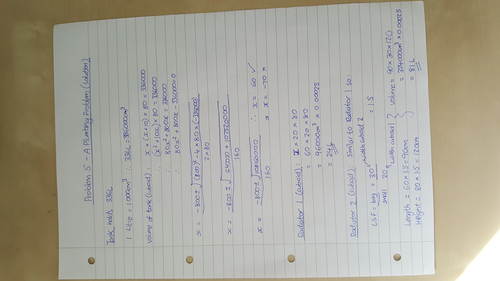 Problem 5 - A Plumbing Problem (Solution)
Tank holds 336L
1 Litre = 1000cm³ ∴ 336L = 336000cm³
Volume of tank (cuboid): x × (x+10) × 80 = 336000
∴ (x² + 10x) × 80 = 336000
∴ 80x² + 800x = 336000
∴ 80x² + 800x - 336000 = 0
x = -800 ± √(800)² - 4×80×(-336000)
2×80
x = -800 ± √640000 + 107520000
160
x = -800 ± √108160000 ∴ x = 60 ✓
160 or x = -70 ×
Radiator 1 (cuboid): x × 20 × 80
= 60 × 20 × 80
= 96000cm³ × 0.00025
= 24L
Radiator 2 (cuboid): Similar to Radiator 1 so
LSF = big = 30 width cuboid 2 = 1.5
small 20 width cuboid 1
Length = 60 × 1.5 = 90cm
Height = 80 × 1.5 = 120cm
Volume = 90 × 30 × 120
= 324000cm³ × 0.00025
= 81L